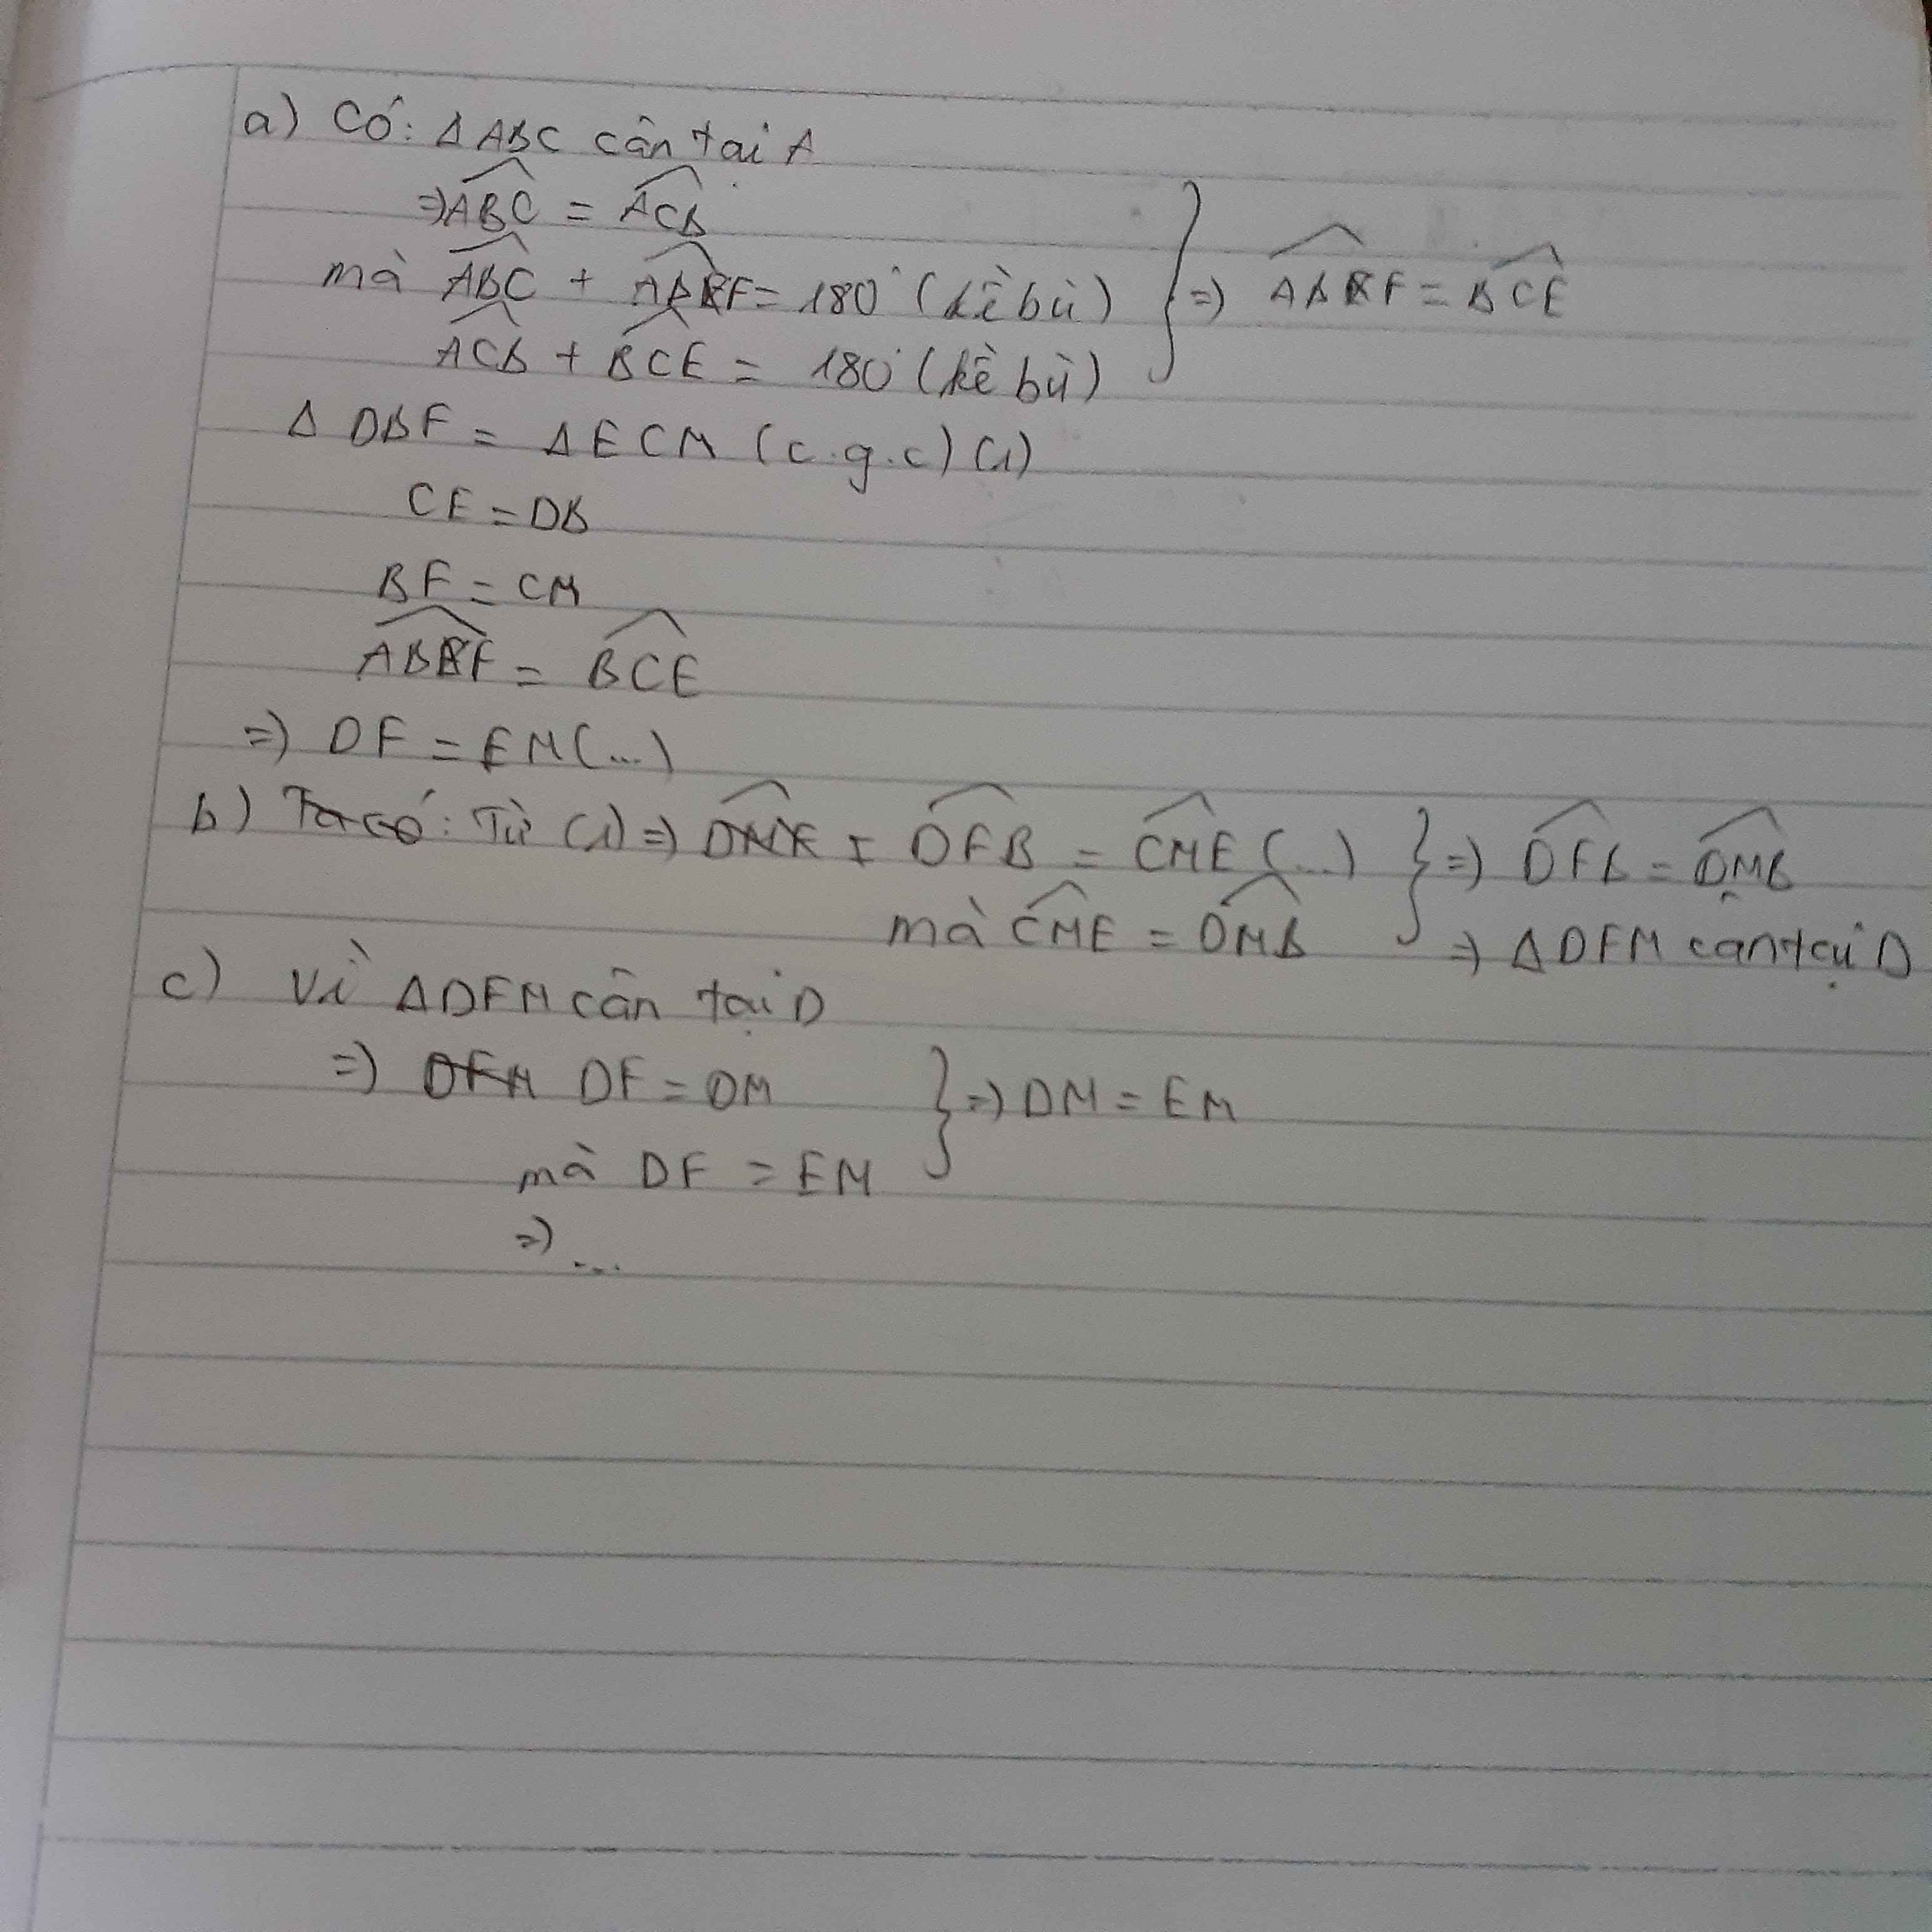 a) Có: Δ ABC cân tại A
=> ABC = ACB
mà ABC + ABF = 180° (kề bù)
ACB + BCE = 180° (kề bù)
} => ABF = BCE
Δ DBF = Δ ECM (c.g.c) (1)
CE = DB
BF = CM
ABF = BCE
=> DF = EM (...)
b) Ta có: Từ (1) => DFB = CME (...)
mà CME = DMB
} => DFB = DMB
=> Δ DFM cân tại D
c) Vì Δ DFM cân tại D
=> DF = DM
mà DF = EM
} => DM = EM
=> ...